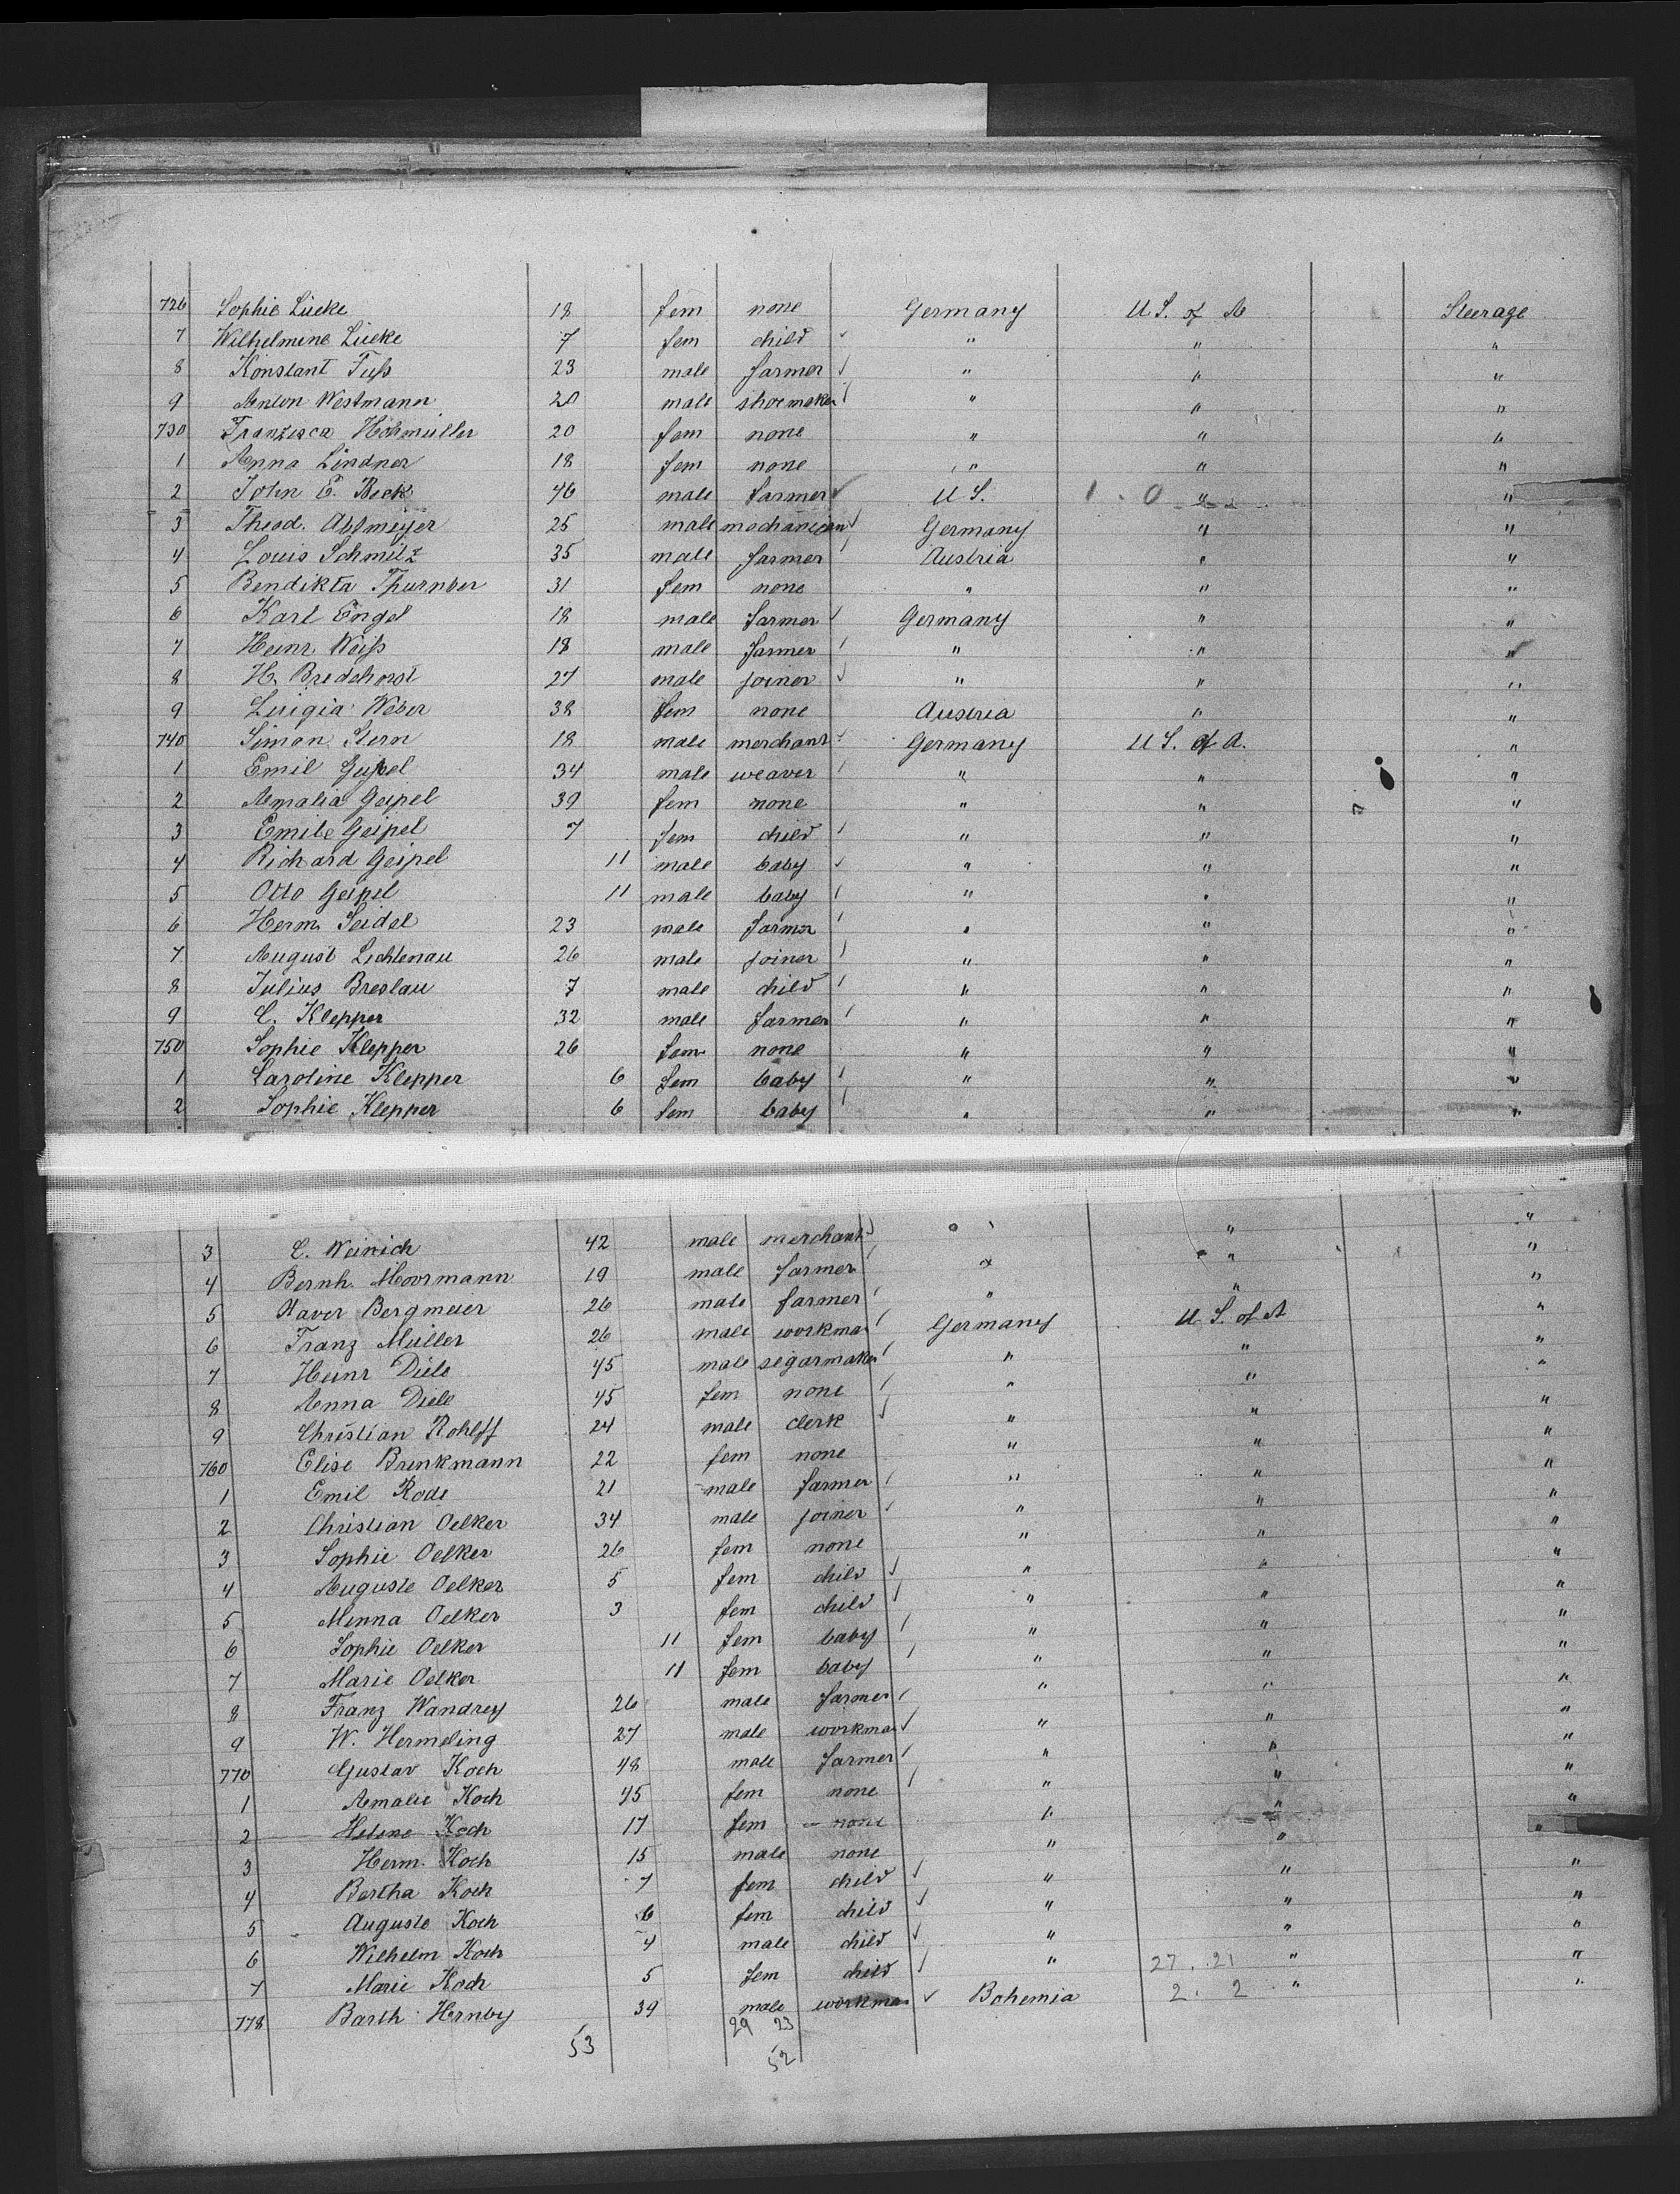 726 Sophie Lücke 18 fem none Germany U S. of A Steerage
7 Wilhelmine Lücke 7 fem child " " "
8 Konstant Fuß 23 male farmer " " "
9 Anton Westmann 20 male shoemaker " " "
730 Franzisca Hohmüller 20 fem none " " "
1 Anna Lindner 18 fem none " " "
2 John E. Beck 46 male farmer U S. 1 . 0 " "
3 Theod. 25 male mechanician Germany " "
4 Louis Schmitz 35 male farmer Austria " "
5 Bendikta Thurnber 31 fem none " " "
6 Karl Engel 18 male farmer Germany " "
7 Heinr Weiß 18 male farmer " " "
8 H. Bredehorst 27 male joiner " " "
9 Luigia Weber 38 fem none Austria " "
740 Simon Stern 18 male merchant Germany U S. of A. "
1 Emil Geipel 34 male weaver " " "
2 Amalia Geipel 39 fem none " " "
3 Emile Geipel 7 fem child " " "
4 Richard Geipel 11 male baby " " "
5 Otto Geipel 11 male baby " " "
6 Herm. Seidel 23 male farmer " " "
7 August Lichtenau 26 male joiner " " "
8 Julius Breslau 7 male child " " "
9 C. Klepper 32 male farmer " " "
750 Sophie Klepper 26 fem none " " "
1 Caroline Klepper 6 fem baby " " "
2 Sophie Klepper 6 fem baby " " "
3 C. Weirich 42 male merchant " " "
4 Bernh. Moormann 19 male farmer " " "
5 Xaver Bergmeier 26 male farmer " " "
6 Franz Müller 26 male workman Germany U S. of A "
7 Heinr Diele 45 male segarmaker " " "
8 Anna Diele 45 fem none " " "
9 Christian Rohlff 24 male clerk " " "
760 Elise Brinkmann 22 fem none " " "
1 Emil Rode 21 male farmer " " "
2 Christian Oelker 34 male joiner " " "
3 Sophie Oelker 26 fem none " " "
4 Auguste Oelker 5 fem child " " "
5 Minna Oelker 3 fem child " " "
6 Sophie Oelker 11 fem baby " " "
7 Marie Oelker 11 fem baby " " "
8 Franz Wandrey 26 male farmer " " "
9 W. Hermeling 27 male workman " " "
770 Gustav Koch 48 male farmer " " "
1 Amalie Koch 45 fem none " " "
2 Helene Koch 17 fem none " " "
3 Herm. Koch 15 male none " " "
4 Bertha Koch 7 fem child " " "
5 Auguste Koch 6 fem child " " "
6 Wilhelm Koch 4 male child " " "
7 Marie Koch 5 fem child " 27 . 21 " "
778 Barth Hernby 39 male workman Bohemia 2 . 2 " "
29 23
53 52